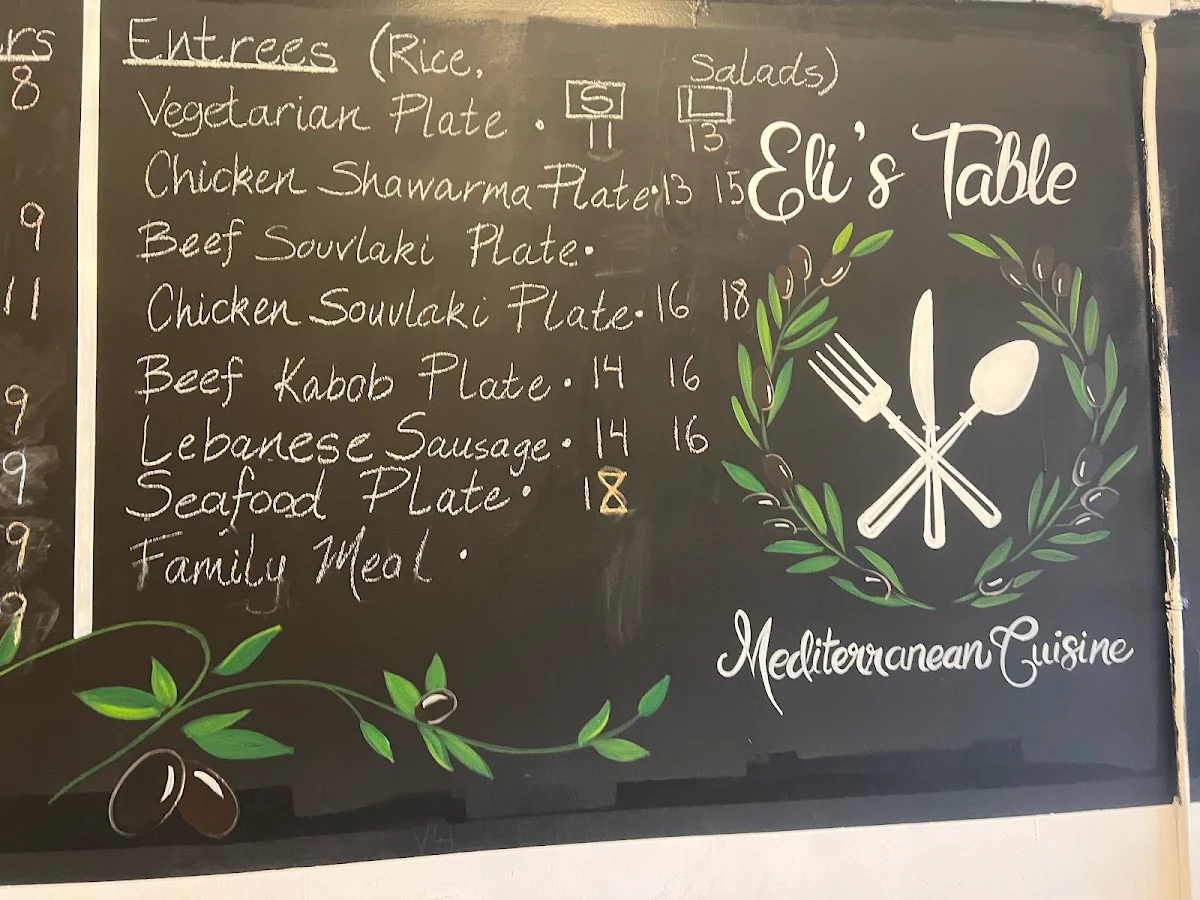 rs
8
9
11
9
9
9
9
Entrees (Rice, Salads)
S L
Vegetarian Plate • 11 13
Chicken Shawarma Plate • 13 15
Beef Souvlaki Plate •
Chicken Souvlaki Plate • 16 18
Beef Kabob Plate • 14 16
Lebanese Sausage • 14 16
Seafood Plate • 18
Family Meal •
Eli's Table
Mediterranean Cuisine